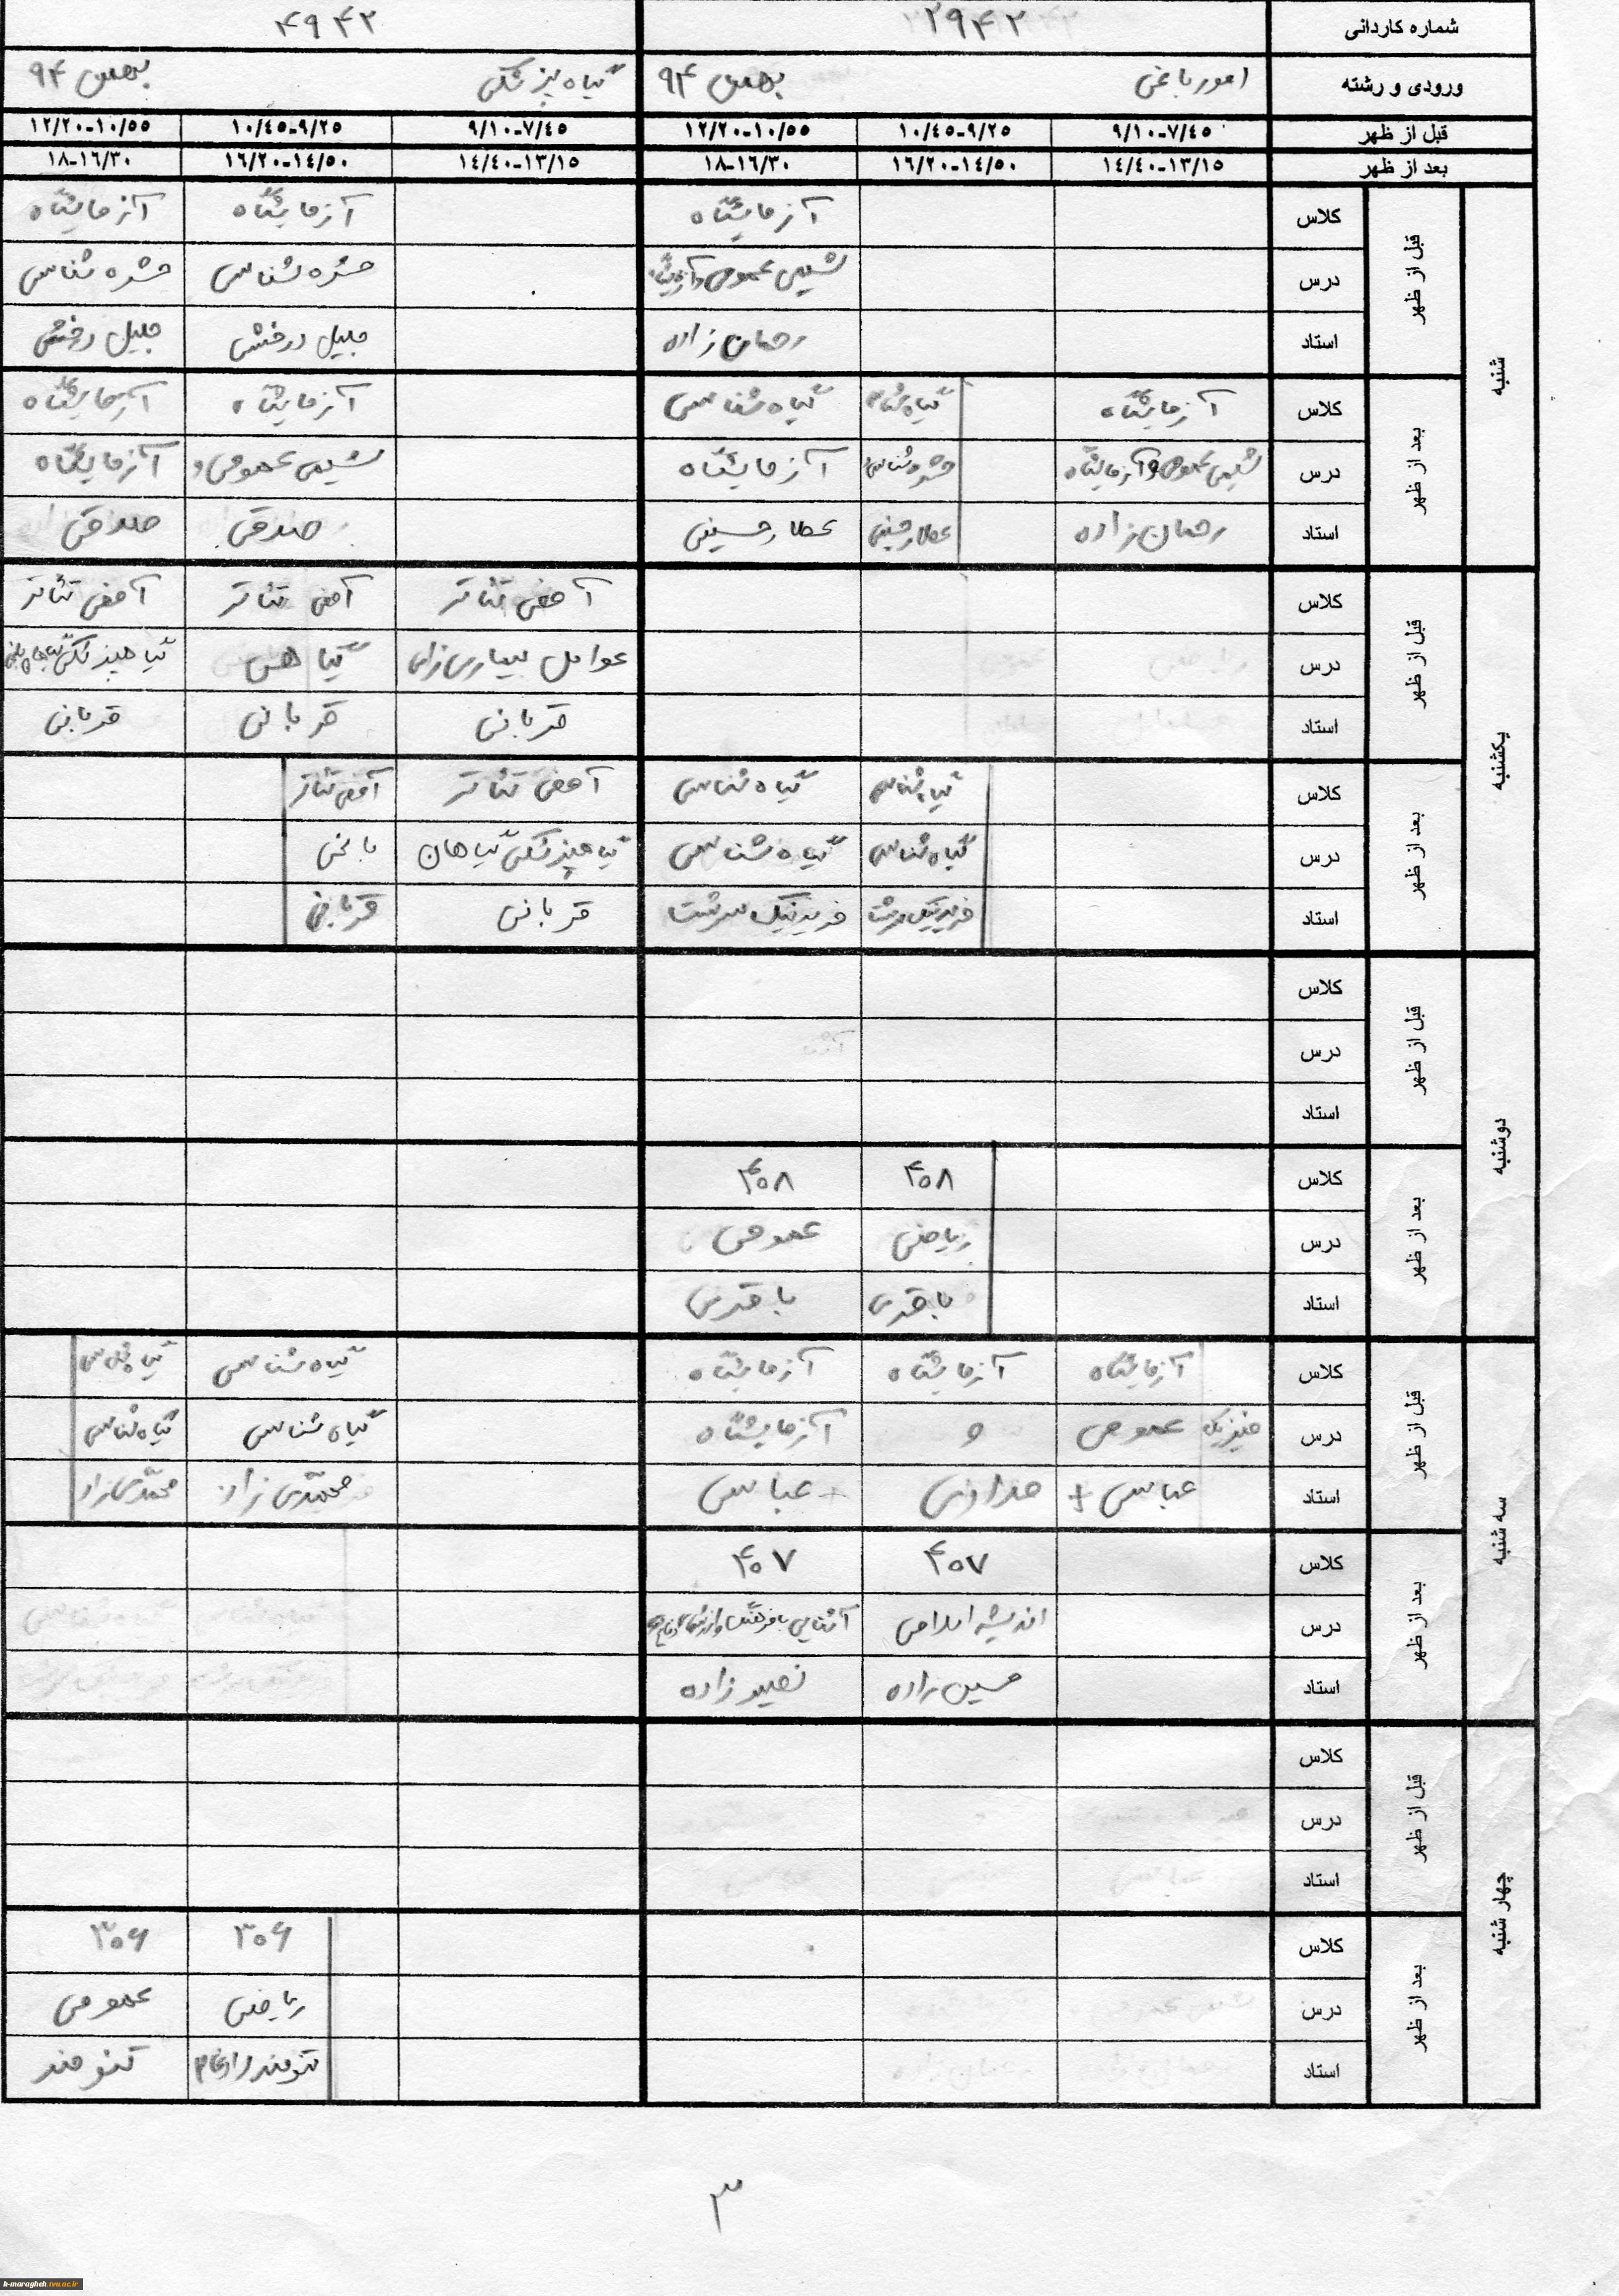 شماره کاردانی ۲۹۴۲ ۴۹۴۲
ورودی و رشته امور باغی بهمن ۹۴ گیاه پزشکی بهمن ۹۴
قبل از ظهر ۷/۴۵-۹/۱۰ ۹/۲۵-۱۰/۴۵ ۱۰/۵۵-۱۲/۲۰ ۷/۴۵-۹/۱۰ ۹/۲۵-۱۰/۴۵ ۱۰/۵۵-۱۲/۲۰
بعد از ظهر ۱۳/۱۵-۱۴/۴۰ ۱۴/۵۰-۱۶/۲۰ ۱۶/۳۰-۱۸ ۱۳/۱۵-۱۴/۴۰ ۱۴/۵۰-۱۶/۲۰ ۱۶/۳۰-۱۸
شنبه
قبل از ظهر
کلاس آزمایشگاه آزمایشگاه آزمایشگاه
درس شیمی عمومی و آزمایشگاه حشره شناسی حشره شناسی
استاد رحمان زاده جلیل درخشی جلیل درخشی
بعد از ظهر
کلاس آزمایشگاه گیاه شناسی گیاه شناسی آزمایشگاه آزمایشگاه
درس شیمی عمومی و آزمایشگاه حشره شناسی آزمایشگاه شیمی عمومی و آزمایشگاه
استاد رحمان زاده عطار حسینی عطار حسینی صدقی صدقی
یکشنبه
قبل از ظهر
کلاس آمفی تئاتر آمفی تئاتر آمفی تئاتر
درس عوامل بیماری زای گیاهی
استاد قربانی قربانی قربانی
بعد از ظهر
کلاس گیاه شناسی گیاه شناسی آمفی تئاتر آمفی تئاتر
درس گیاه شناسی گیاه شناسی گیاهپزشکی گیاهان باغی
استاد فرید نیک سرشت فرید نیک سرشت قربانی قربانی
دوشنبه
قبل از ظهر
کلاس
درس
استاد
بعد از ظهر
کلاس ۴۰۸ ۴۰۸
درس ریاضی عمومی
استاد باقری باقری
سه شنبه
قبل از ظهر
کلاس آزمایشگاه آزمایشگاه آزمایشگاه گیاه شناسی گیاه شناسی
درس فیزیک عمومی و آزمایشگاه گیاه شناسی گیاه شناسی
استاد عباسی + عباسی محمدی نژاد محمدی نژاد
بعد از ظهر
کلاس ۴۰۷ ۴۰۷
درس اندیشه اسلامی آشنایی با فرهنگ و ارزشهای دفاع
استاد حسین زاده نصیر زاده
چهار شنبه
قبل از ظهر
کلاس
درس
استاد
بعد از ظهر
کلاس ۳۰۶ ۳۰۶
درس ریاضی عمومی
استاد تنومند تنومند
۳
k-maragheh.tvu.ac.ir